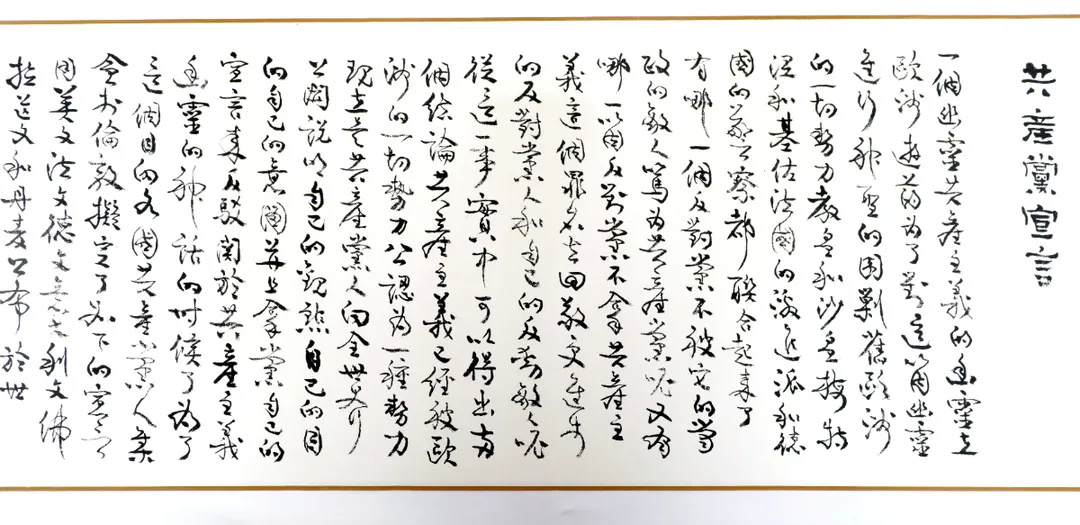 共產黨宣言
一個幽靈共產主義的幽靈在
歐洲遊蕩為了對這個幽靈
進行神聖的圍剿舊歐洲
的一切勢力教皇和沙皇梅特
涅和基佐法國的激進派和德
國的警察都聯合起來了
有哪一個反對黨不被它的當
政的敵人罵為共產黨呢又有
哪一個反對黨不拿共產主
義這個罪名去回敬更進步
的反對黨人和自己的反動敵人呢
從這一事實中可以得出兩
個結論共產主義已經被歐
洲的一切勢力公認為一種勢力
現在是共產黨人向全世界
公開說明自己的觀點自己的目
的自己的意圖並且拿黨自己的
宣言來反駁關於共產主義
幽靈的神話的時候了為了
這個目的各國共產黨人集
會於倫敦擬定了如下的宣言
用英文法文德文意大利文佛
拉芒文和丹麥公布於世